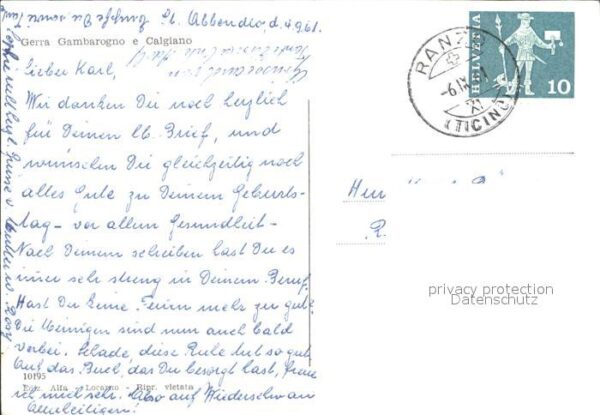 St. Abbondio, d. 4.9.61.
Gerra Gambarogno e Calgiano
Lieber Karl,
Wir danken Dir noch herzlich
für Deinen lb. Brief, und
wünschen Dir gleichzeitig noch
alles Gute zu Deinem Geburts-
tag - vor allem Gesundheit -
Nach Deinem schreiben hast Du es
imer sehr streng in Deinem Beruf.
Hast Du keine Ferien mehr zu gut?
Die Meinigen sind nun auch bald
vorbei. Schade, diese Ruhe tut so gut.
Auf das Buch, das Du besorgt hast, freue
ich mich sehr. Also auf Wiedersehn an
Allerheiligen!
10195
Ediz. Alfa - Locarno - Ripr. vietata
HELVETIA
10
RANZO
-6.IX.61
(TICINO)
Herrn
R.
privacy protection
Datenschutz